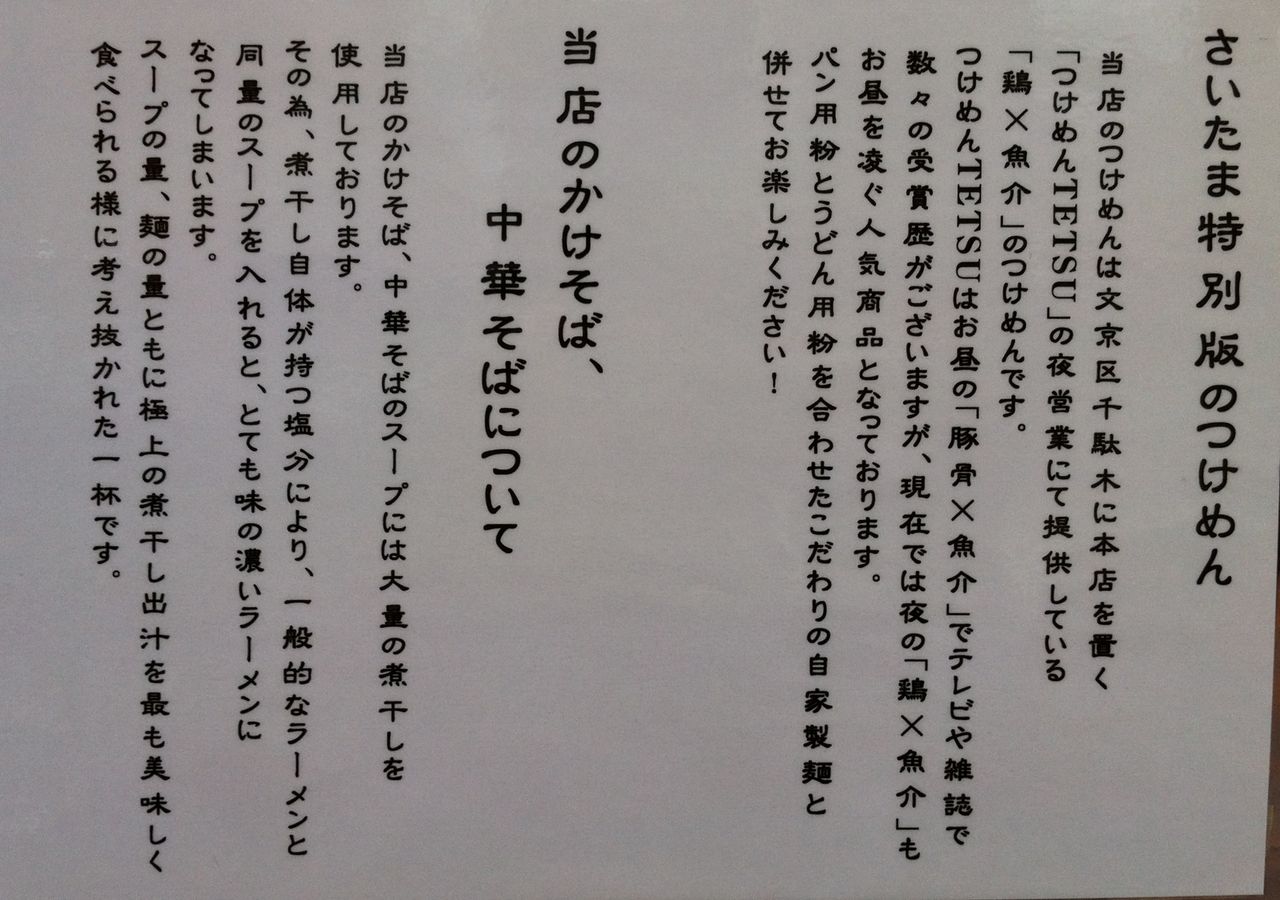 さいたま特別版のつけめん
当店のつけめんは文京区千駄木に本店を置く
「つけめんTETSU」の夜営業にて提供している
「鶏×魚介」のつけめんです。
つけめんTETSUはお昼の「豚骨×魚介」でテレビや雑誌で
数々の受賞歴がございますが、現在では夜の「鶏×魚介」も
お昼を凌ぐ人気商品となっております。
パン用粉とうどん用粉を合わせたこだわりの自家製麺と
併せてお楽しみください！
当店のかけそば、
中華そばについて
当店のかけそば、中華そばのスープには大量の煮干しを
使用しております。
その為、煮干し自体が持つ塩分により、一般的なラーメンと
同量のスープを入れると、とても味の濃いラーメンに
なってしまいます。
スープの量、麺の量ともに極上の煮干し出汁を最も美味しく
食べられる様に考え抜かれた一杯です。